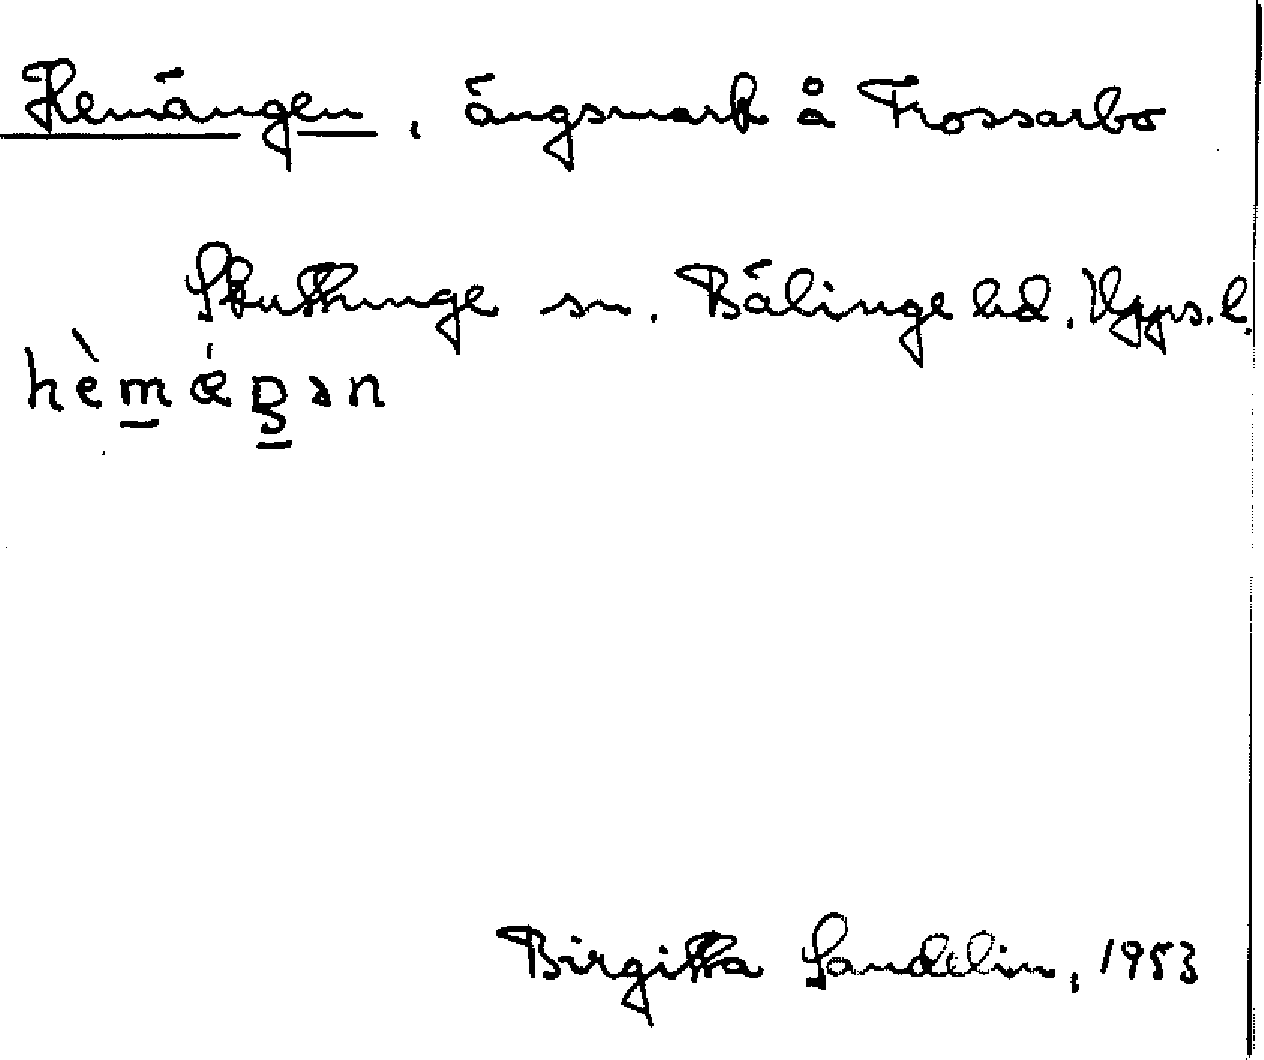 Hemängen, ängsmark å Frossarbo
Skuttunge sn. Bälinge hd. Upps. l.
hè̀m̲ǽŋ̲ən
Birgitta Sandelin, 1953